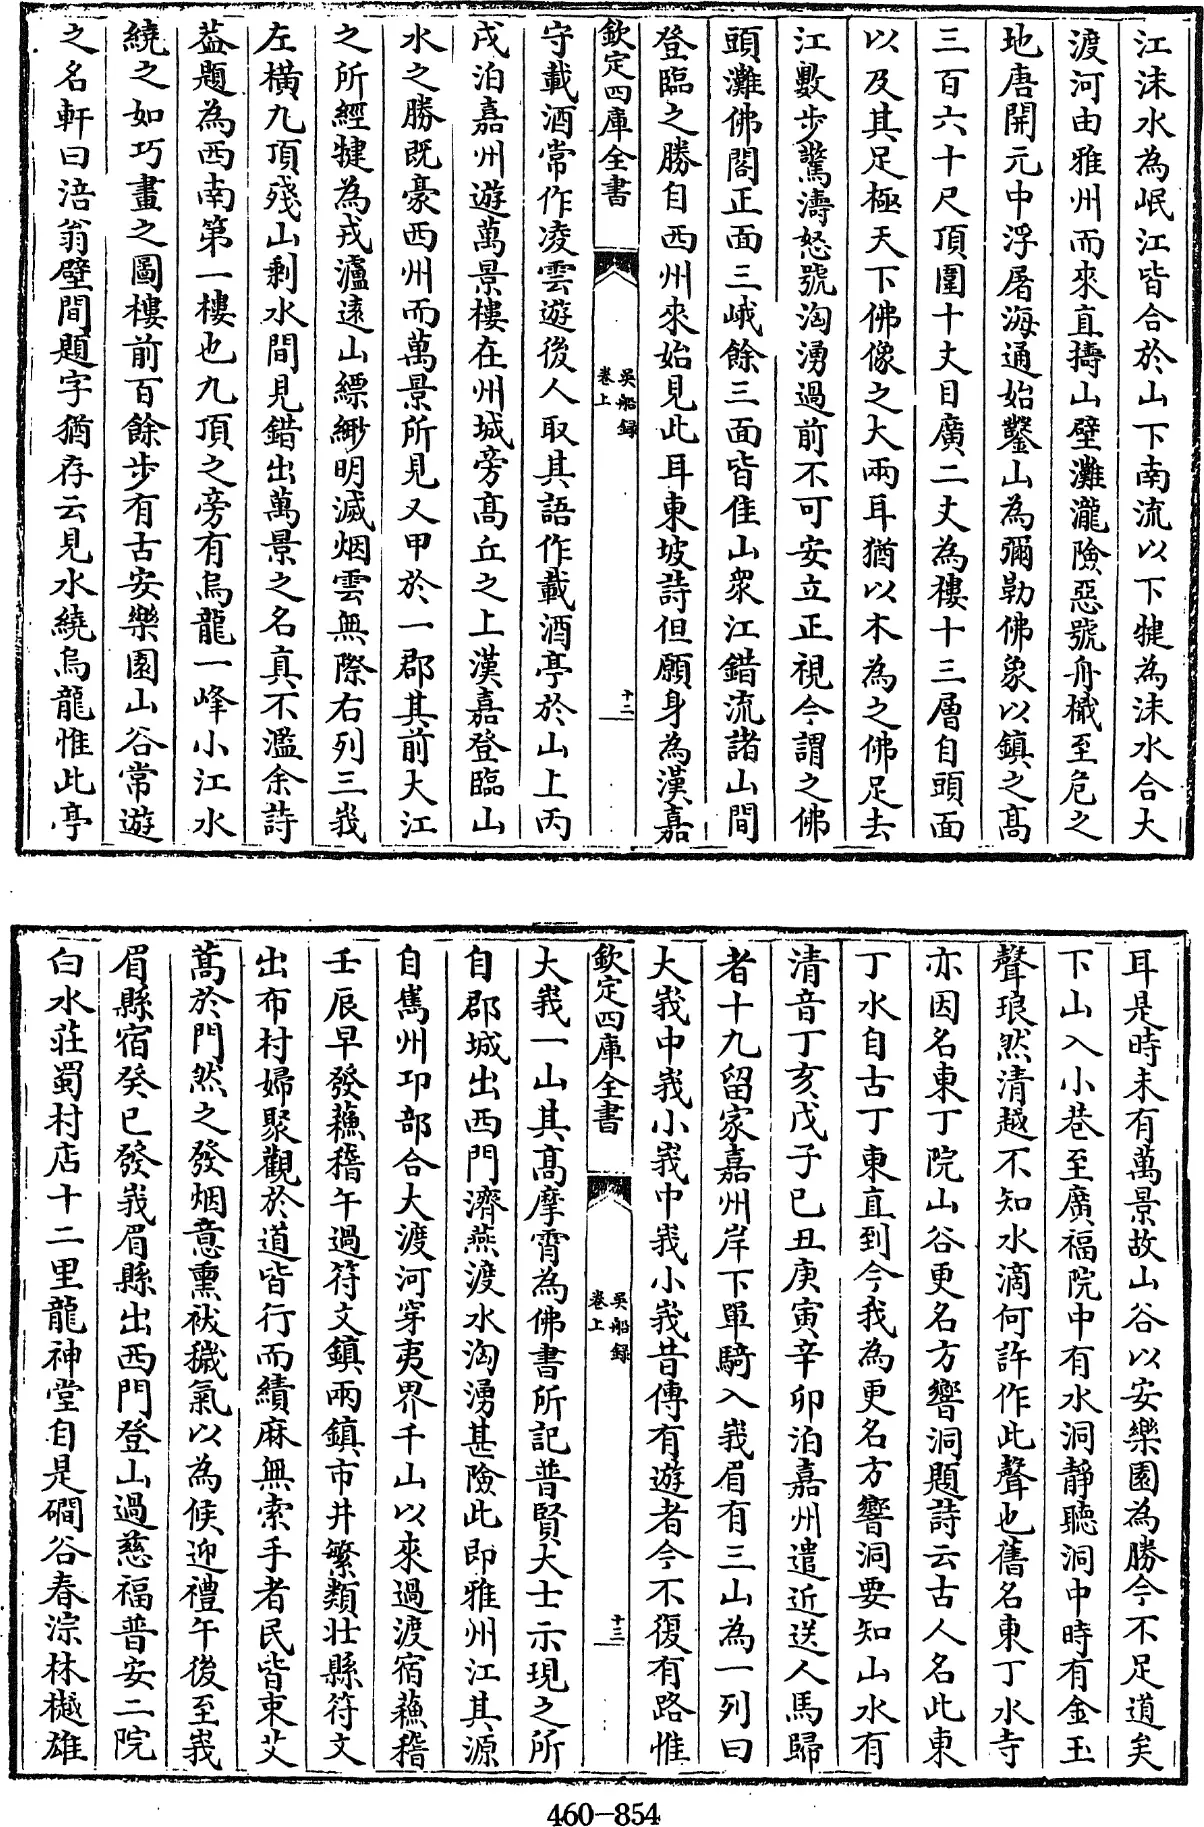 江沫水為岷江皆合於山下南流以下犍為沫水合大
渡河由雅州而來直擣山壁灘瀧險惡號舟檝至危之
地唐開元中浮屠海通始鑿山為彌勒佛象以鎮之髙
三百六十尺頂圍十丈目廣二丈為樓十三層自頭面
以及其足極天下佛像之大兩耳猶以木為之佛足去
江數步驚濤怒號洶湧過前不可安立正視今謂之佛
頭灘佛閣正面三峨餘三面皆佳山衆江錯流諸山間
登臨之勝自西州來始見此耳東坡詩但願身為漢嘉
欽定四庫全書
吳船録
卷上
十二
守載酒常作凌雲遊後人取其語作載酒亭於山上丙
戌泊嘉州遊萬景樓在州城旁髙丘之上漢嘉登臨山
水之勝既豪西州而萬景所見又甲於一郡其前大江
之所經犍為戎瀘遠山縹緲明滅烟雲無際右列三峩
左橫九頂殘山剩水間見錯出萬景之名真不濫余詩
葢題為西南第一樓也九頂之旁有烏龍一峰小江水
繞之如巧畫之圖樓前百餘步有古安樂園山谷常遊
之名軒曰涪翁壁間題字猶存云見水繞烏龍惟此亭
耳是時未有萬景故山谷以安樂園為勝今不足道矣
下山入小巷至廣福院中有水洞靜聽洞中時有金玉
聲琅然清越不知水滴何許作此聲也舊名東丁水寺
亦因名東丁院山谷更名方響洞題詩云古人名此東
丁水自古丁東直到今我為更名方響洞要知山水有
清音丁亥戊子已丑庚寅辛卯泊嘉州遣近送人馬歸
者十九留家嘉州岸下單騎入峩眉有三山為一列曰
大峩中峩小峩中峩小峩昔傳有遊者今不復有路惟
欽定四庫全書
吳船録
卷上
十三
大峩一山其髙摩霄為佛書所記普賢大士示現之所
自郡城出西門濟燕渡水洶湧甚險此即雅州江其源
自雟州卭部合大渡河穿夷界千山以來過渡宿蘓稽
壬辰早發蘓稽午過符文鎮兩鎮市井繁類壯縣符文
出布村婦聚觀於道皆行而績麻無索手者民皆束艾
蒿於門然之發烟意熏袚穢氣以為候迎禮午後至峩
眉縣宿癸已發峩眉縣出西門登山過慈福普安二院
白水荘蜀村店十二里龍神堂自是磵谷舂淙林樾雄
460-854